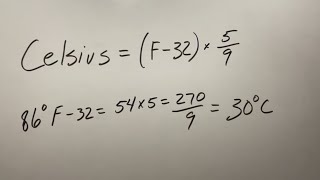 Celsius = (F-32) × 5/9
86° F - 32 = 54 × 5 = 270/9 = 30°C